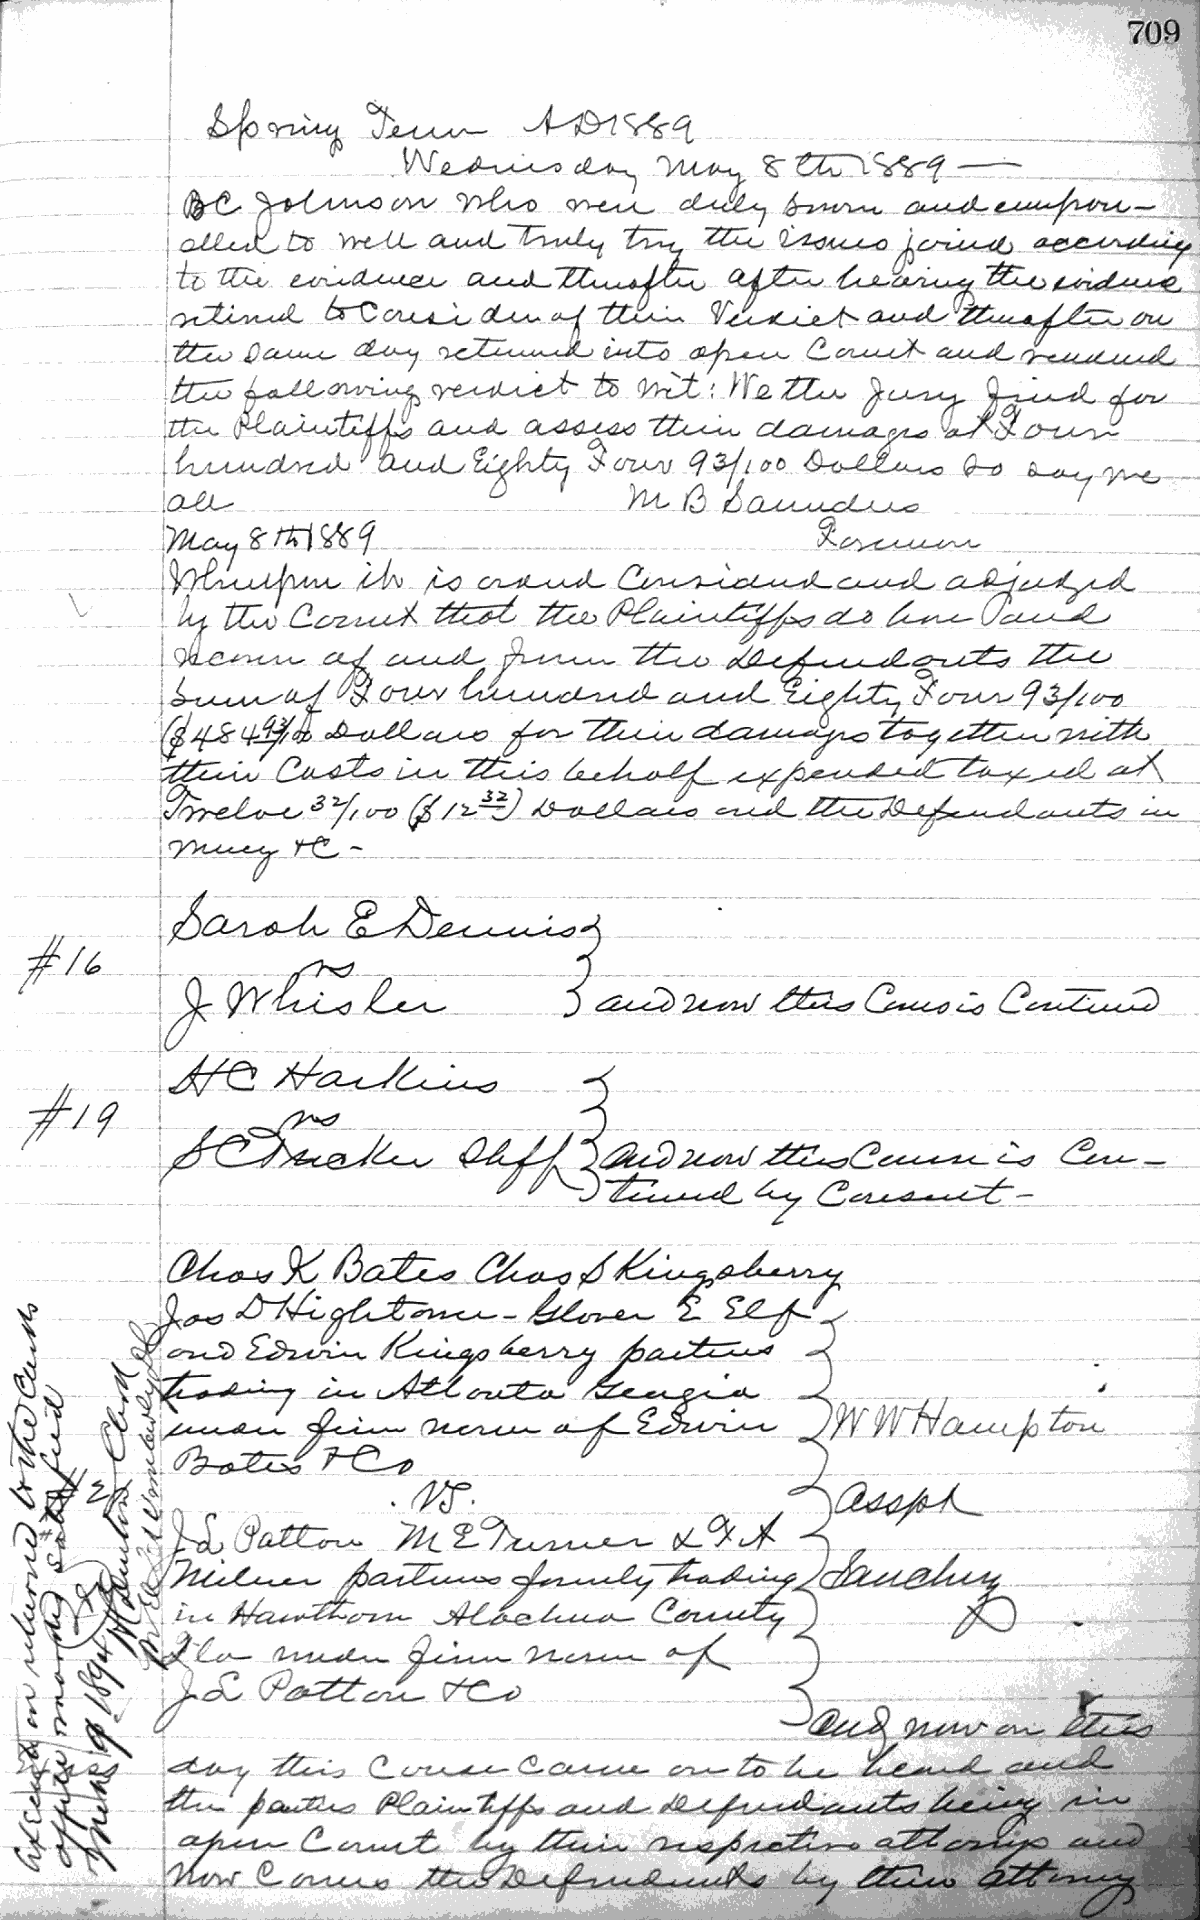 709
Spring Term A D 1889
Wednesday May 8th 1889 —
BC Johnson who were duly sworn and empan-
elled to well and truly try the issues joined according
to the evidence and thereafter after hearing the evidence
retired to Consider of their Verdict and thereafter on
the same day returned into open Court and rendered
the following verdict to wit: We the Jury find for
the Plaintiffs and assess their damages at Four
hundred and Eighty Four 93/100 Dollars So say we
all M B Saunders
May 8th 1889 Foreman
Whereupon it is ordered Considered and adjudged
by the Court that the Plaintiffs do have and
recover of and from the Defendants the
sum of Four hundred and Eighty Four 93/100
($484 93/100 Dollars for their damages together with
their Costs in this behalf expended taxed at
Twelve 32/100 ($12 32) Dollars and the Defendants in
mercy &C -
Sarah E Dennis
#16
vs
J Whisler and now this Cause is Continued
H C Harkins
#19
vs
S C Tucker Shff and now this Cause is Con-
tinued by Consent -
Chas K Bates Chas S Kingsberry
Jas D Hightower - Glover E Elf
and Edwin Kingsberry partners
trading in Atlanta Georgia
under firm name of Edwin W W Hampton
Bates & Co
.VS. asspt
J L Patton M E Turner & F A
Milner partners formerly trading Sanchez
in Hawthorn Alachua County
Fla under firm name of
J L Patton & Co
and now on this
day this Cause Came on to be heard and
the parties Plaintiffs and Defendants being in
open Court by their respective attorneys and
Now Comes the Defendants by their attorney
returned to the
satisfied
1894
Clerk